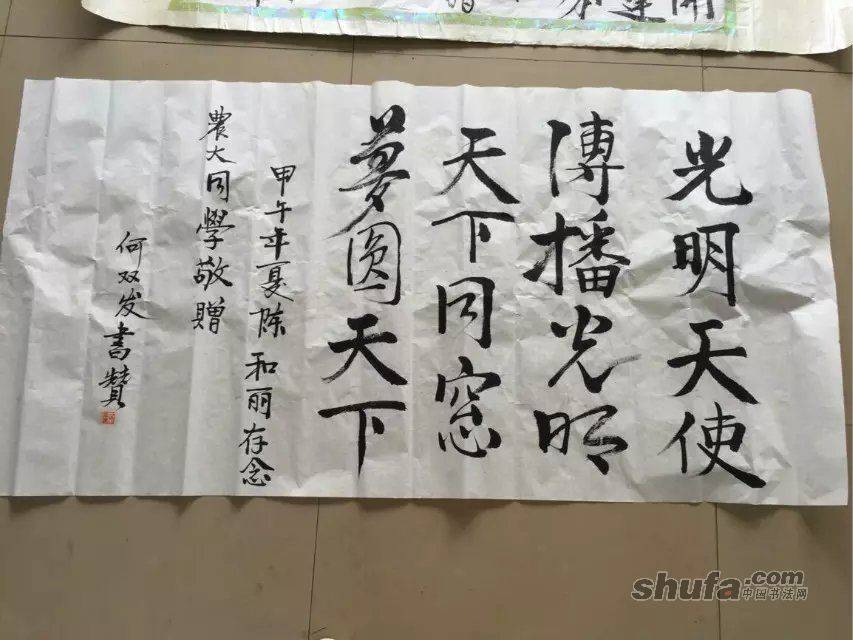 光明天使
傳播光明
天下同窓
夢圆天下
甲午年夏陈和丽存念
農大同學敬赠
何双发書赞
shufa.com
中国书法网